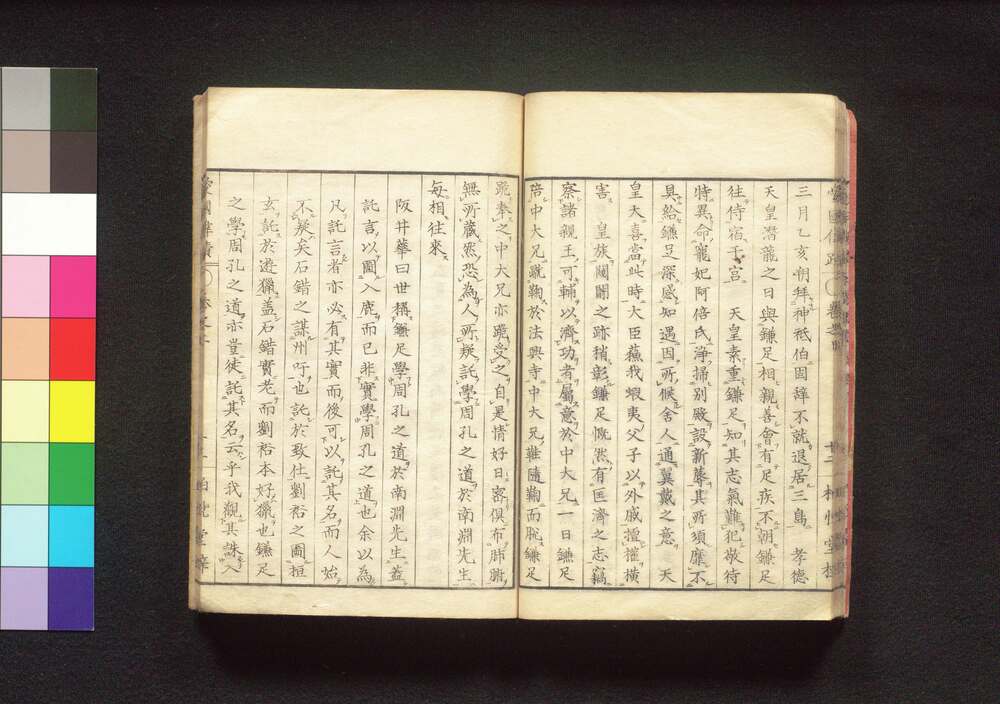 三月乙亥朔拜神祇伯固辭不就退居三島　孝德
天皇潛龍之日與鎌足相親善會有足疾不朝鎌足
往侍宿于宮　天皇素重鎌足知其志氣難犯敬待
特異命寵妃阿倍氏淨掃別殿設新蓐其所須靡不
具給鎌足深感知遇因所候舍人通翼戴之意　天
皇大喜當此時大臣蘇我蝦夷父子以外戚擅權橫
害　皇族闚闞之跡稍彰鎌足慨然有匡濟之志竊
察諸親王可輔以濟功者屬意於中大兄一日鎌足
陪中大兄蹴鞠於法興寺中大兄鞋隨鞠而脫鎌足
跪奉之中大兄亦跪受之自是情好日密俱布肺腑
無所藏然恐為人所疑託學周孔之道於南淵先生
每相往來
阪井華曰世稱鎌足學周孔之道於南淵先生蓋
託言以圖入鹿而已非實學周孔之道也余以為
凡託言者亦必有其實而後可以託其名而人始
不疑矣石碏之謀州吁也託於致仕劉裕之圖桓
玄託於遊獵蓋石碏實老而劉裕本好獵也鎌足
之學周孔之道亦豈徒託其名云乎我觀其誅入